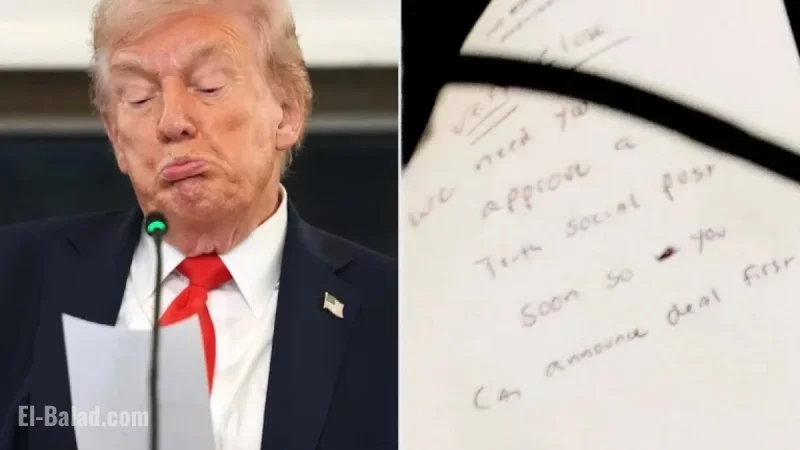 Very close
we need you
approve a
Truth Social post
soon so you
can announce deal first
El-Balad.com